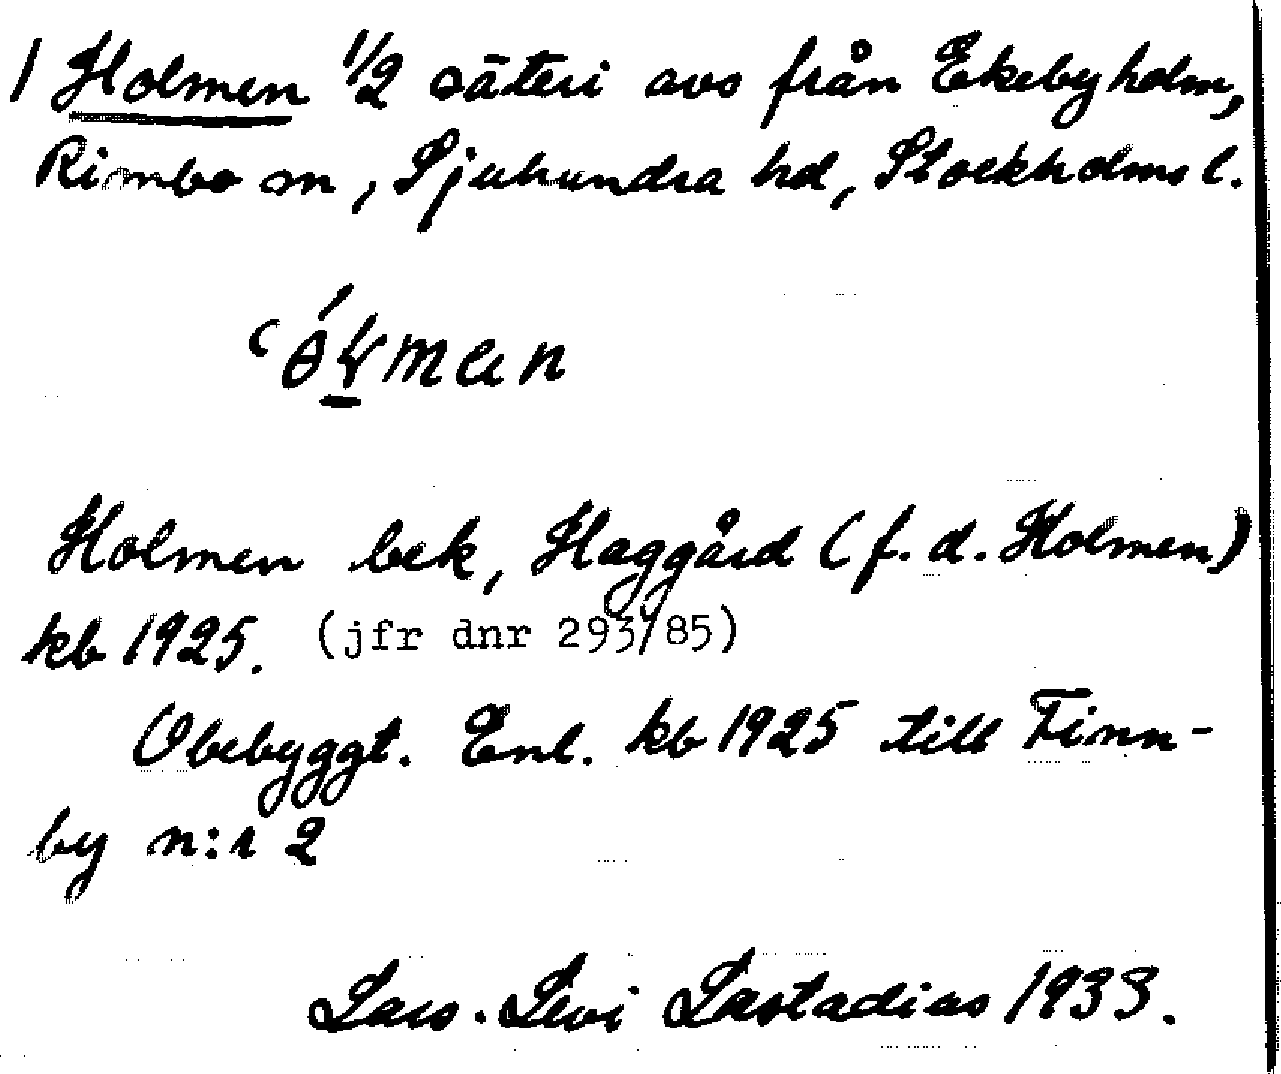 1 Holmen 1/2 säteri avs från Ekebyholm,
Rimbo sn, Sjuhundra hd, Stockholms l.
Holmen bek, Haggård (f.d. Holmen)
kb 1925. (jfr dnr 293/85)
Obebyggt. Enl. kb 1925 till Finn-
by n:r 2
Lars-Levi Læstadius 1933.